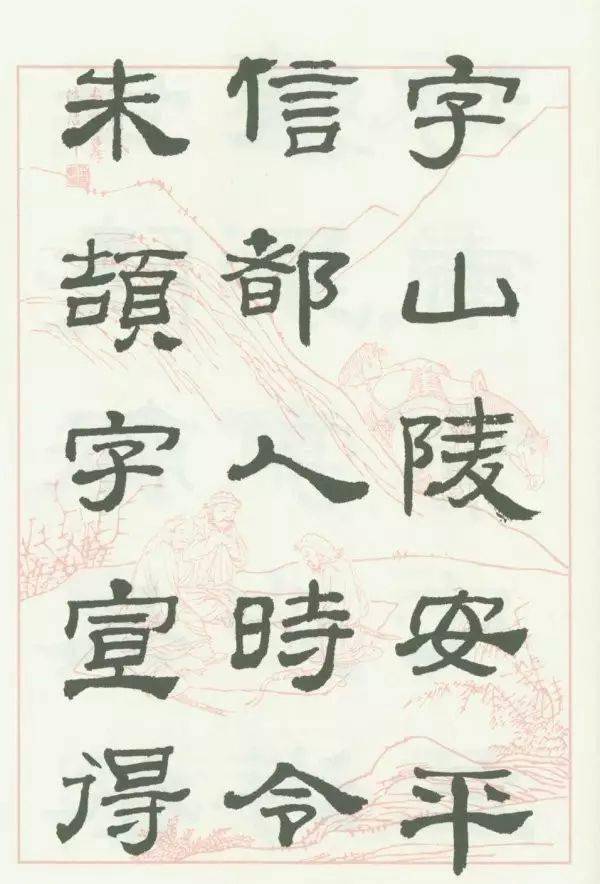 字山陵安平
信都人時令
朱頡字宣得